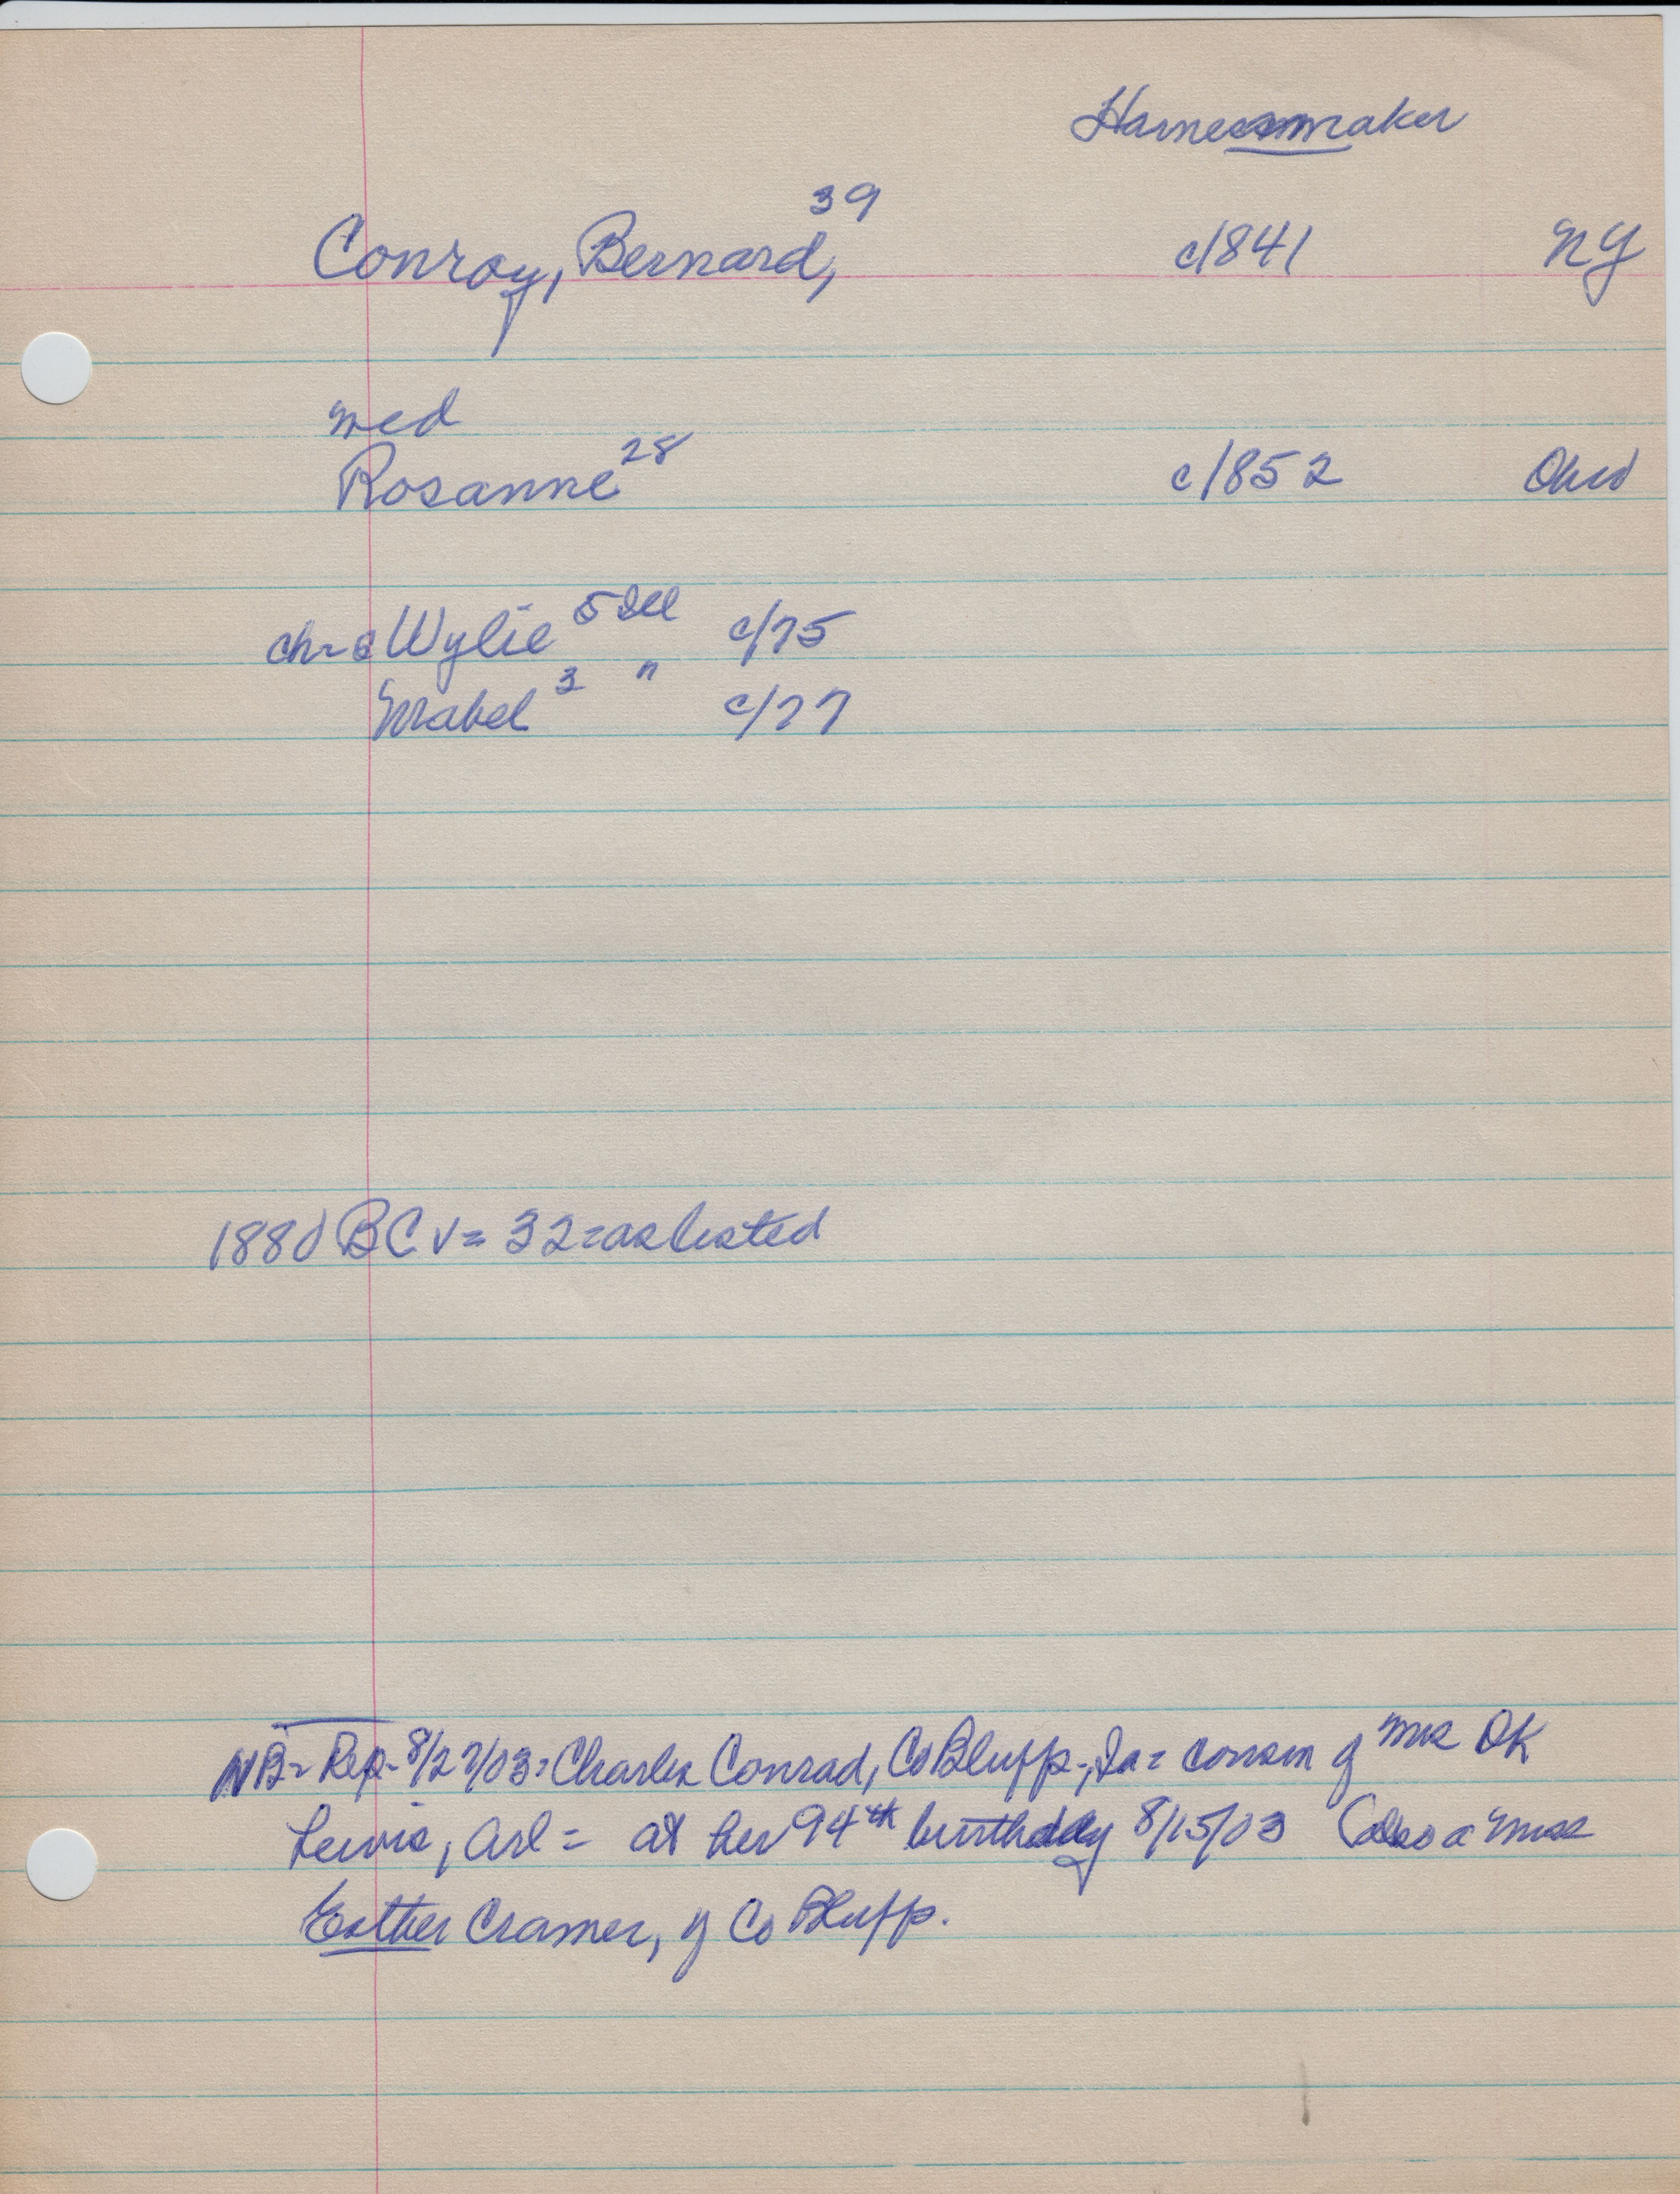 Harnessmaker
Conroy, Bernard, 39 c/841 NY
med
Rosanne 28 c/852 Ohio
ch= Wylie 5 Ill c/75
Mabel 3 " c/77
1880 BC v= 32= as listed
NB= Rep- 8/27/03= Charles Conrad, Co Bluffs, Ia= cousin of Mrs DK
Lewis, Arl= at her 94th birthday 8/15/03 (also a Miss
Esther Cramer, of Co Bluffs.